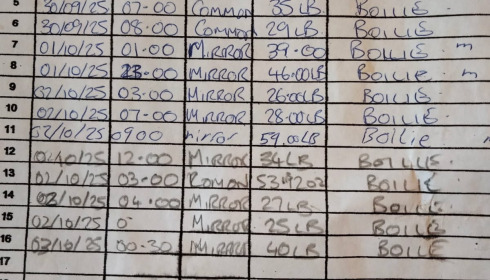 5 30/09/25 07-00 Common 35LB BOILIE
6 30/09/25 08.00 Common 29LB BOILIE
7 01/10/25 01-00 MIRROR 39-00 BOILIE m
8 01/10/25 MIRROR 46.00LB BOILIE m
9 02/10/25 03-00 MIRROR 26-00LB BOILIE
10 02/10/25 07-00 MIRROR 28.00LB BOILIE
11 02/10/25 0900 mirror 59.00LB Boilie
12 02/10/25 12-00 MIRROR 34LB BOILIE
13 02/10/25 03-00 COMMON BOILIE
14 02/10/25 04.00 MIRROR 27LB BOILIE
15 02/10/25 MIRROR 25LB BOILIE
16 02/10/25 00-30 MIRROR 40LB BOILIE
17